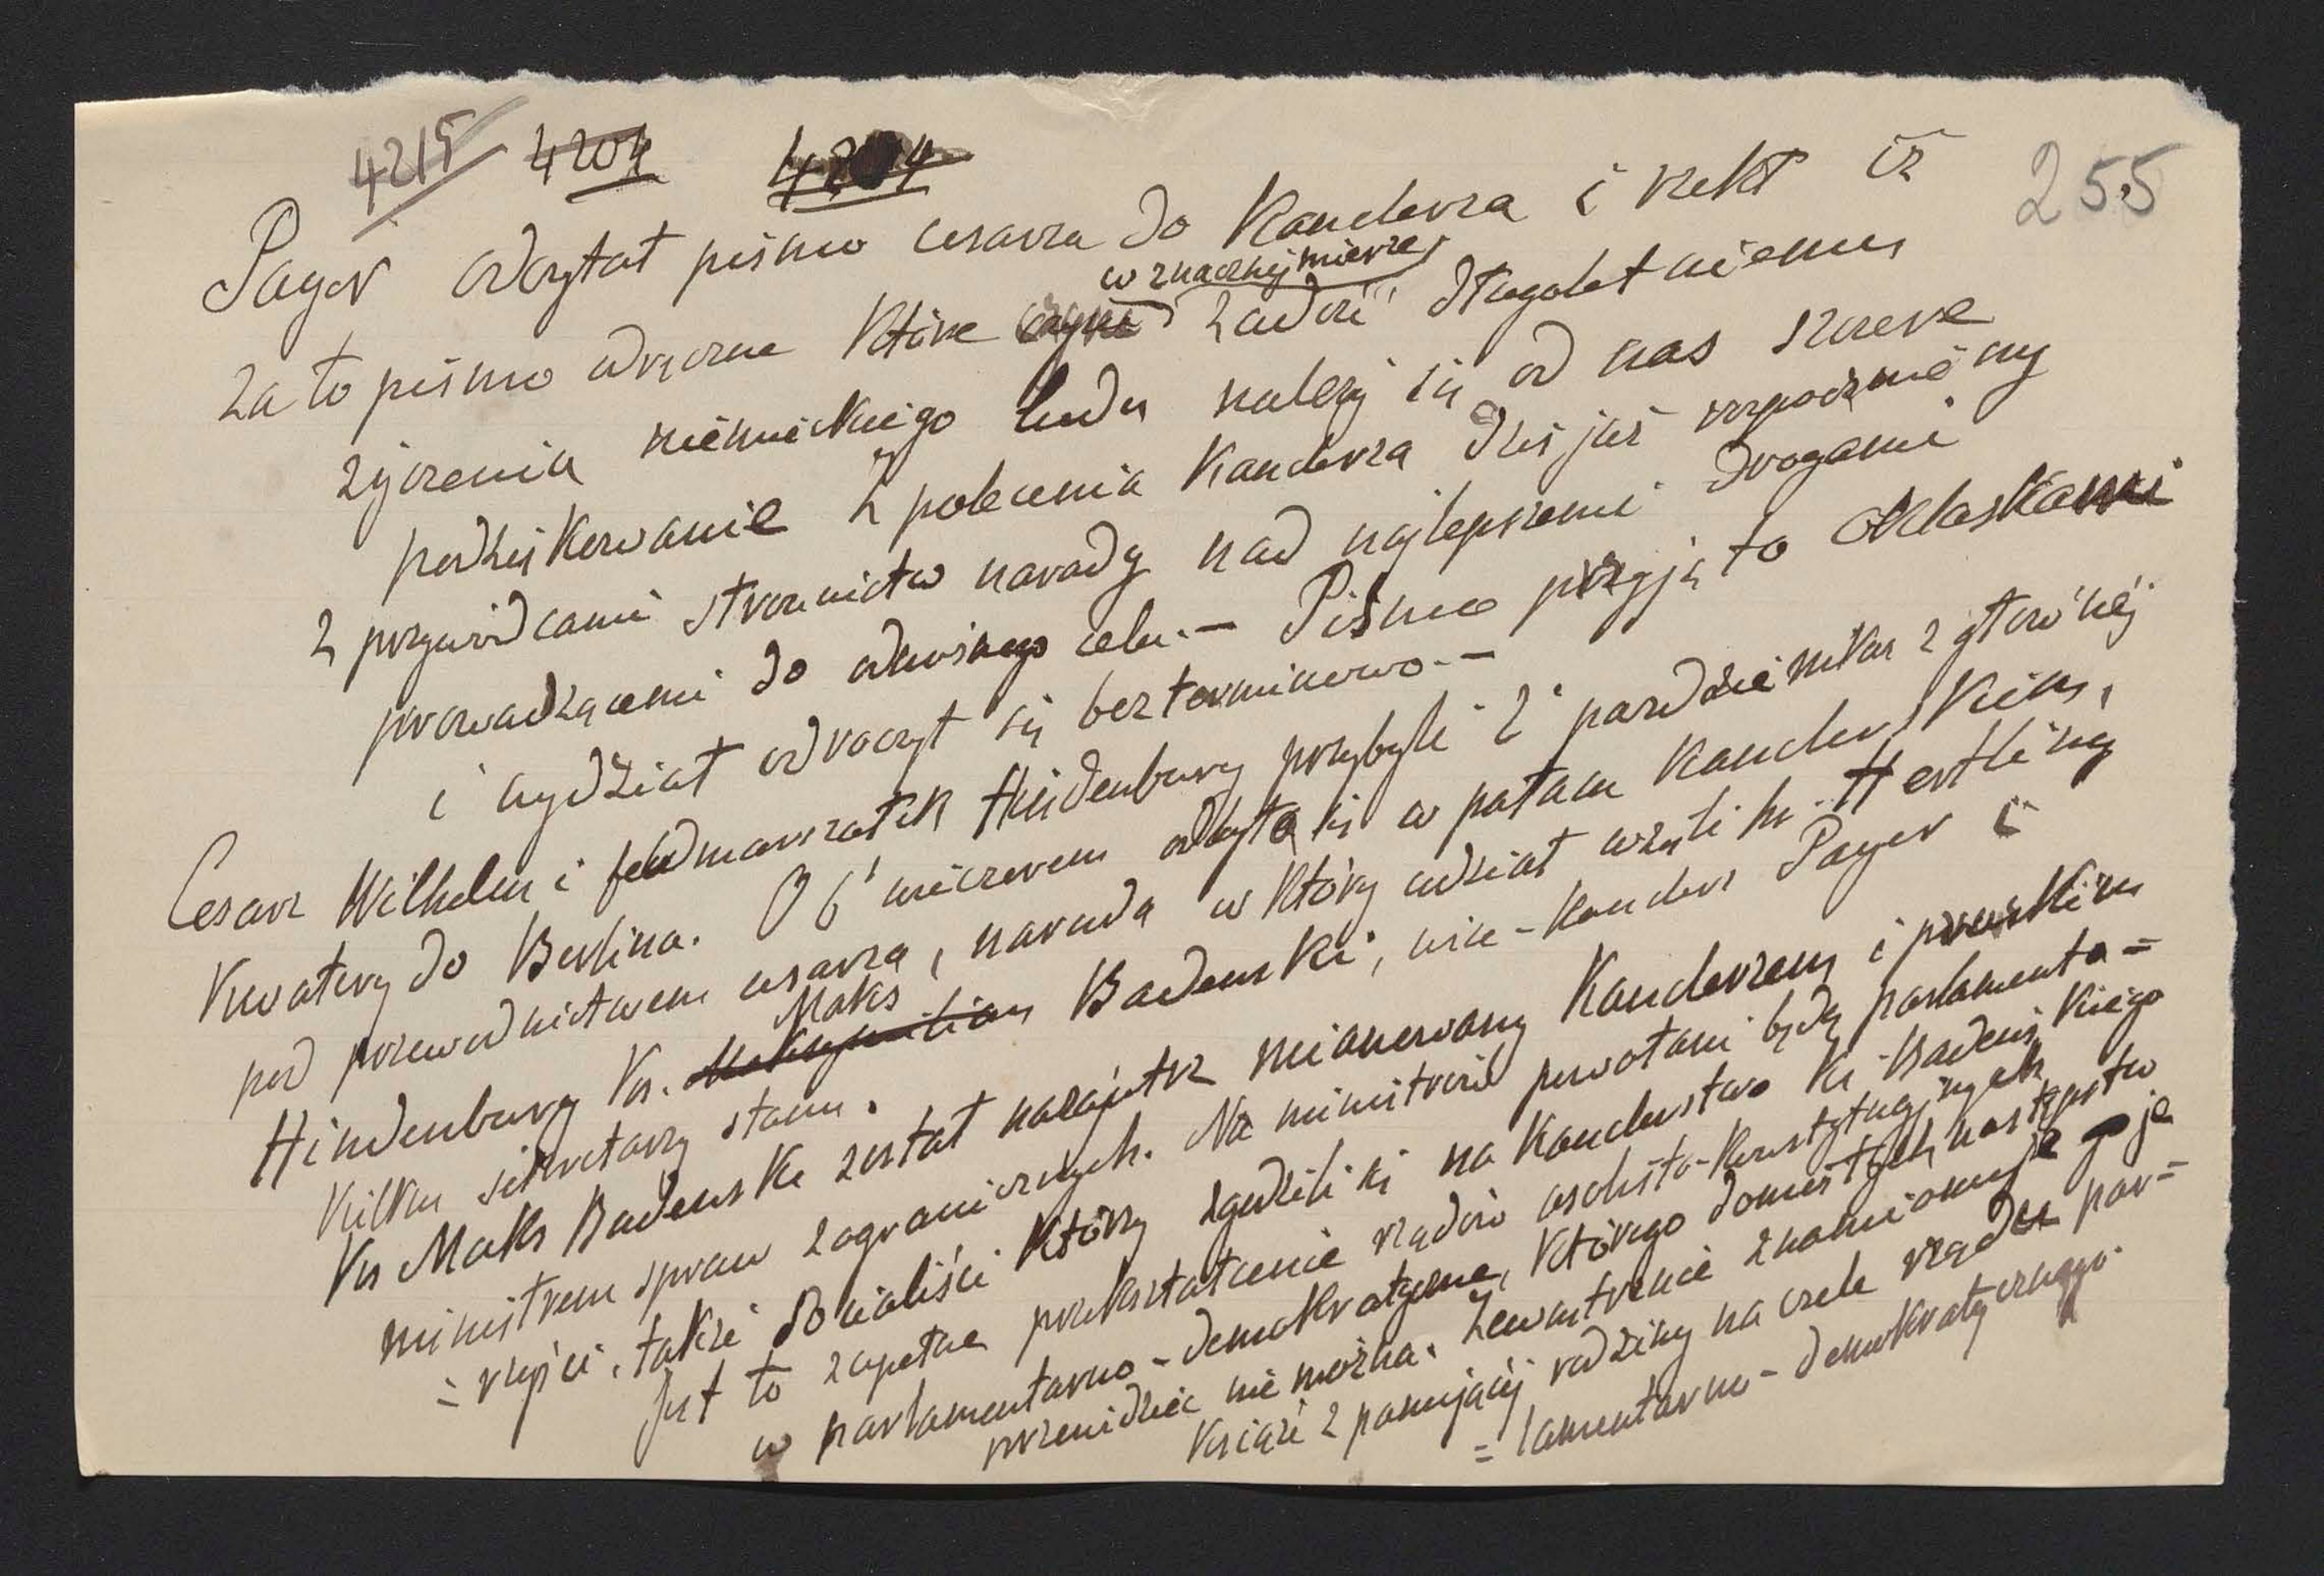 4215 4204 4204
255
Payer odczytał pismo cesarza do Kanclerza i rzekł iż
w znacznéj mierze
za to pismo wdzięczne które czyni zadość długoletniemu
życzeniu niemieckiego ludu należy się od nas szczere
podziękowanie Z polecenia Kanclerza dziś już rozpoczniemy
z przywódcami stronnictw narady nad najlepszemi drogami
prowadzącemi do odnośnego celu.— Pismo przyjęto oklaskami
i wydział odroczył się bezterminowo.—
Cesarz Wilhelm i feldmarszałek Hindenburg przybyli 2 październiku z głównéj
Kwatery do Berlina. O 6 wieczorem odbyła się w pałacu Kanclerskim,
pod przewodnictwem cesarza, narada w któréj udział wzięli hr. Hertling
Maks
Hindenburg Ks. Maksymilian Badenski, wice-kanclerz Payer i
kilku sekretarzy stanu.
Ks Maks Badenski został nazajutrz mianowany Kanclerzem i pruskim
ministrem spraw zagranicznych. Na ministrów powołani będą parlamenta=
=rzyści, także Socialiści którzy zgodzili się na Kanclerstwo Ks Badeńskiego
Jest to zupełne przekształcenie rządów osobisto-konstytucyjnych
w parlamentarno-demokratyczne, którego doniosłych następstw
przewidzieć nie można. Zewnętrznie znamionuje go je
Książe z panującéj rodziny na czele rządu par=
=lamentarno-demokratycznego.